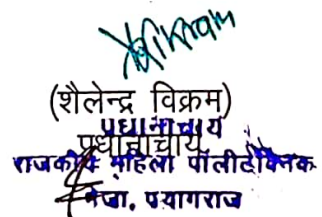 (शैलेन्द्र विक्रम)
प्रधानाचार्य
प्रधानाचार्य
राजकीय महिला पॉलीटेक्निक
प्रयागराज